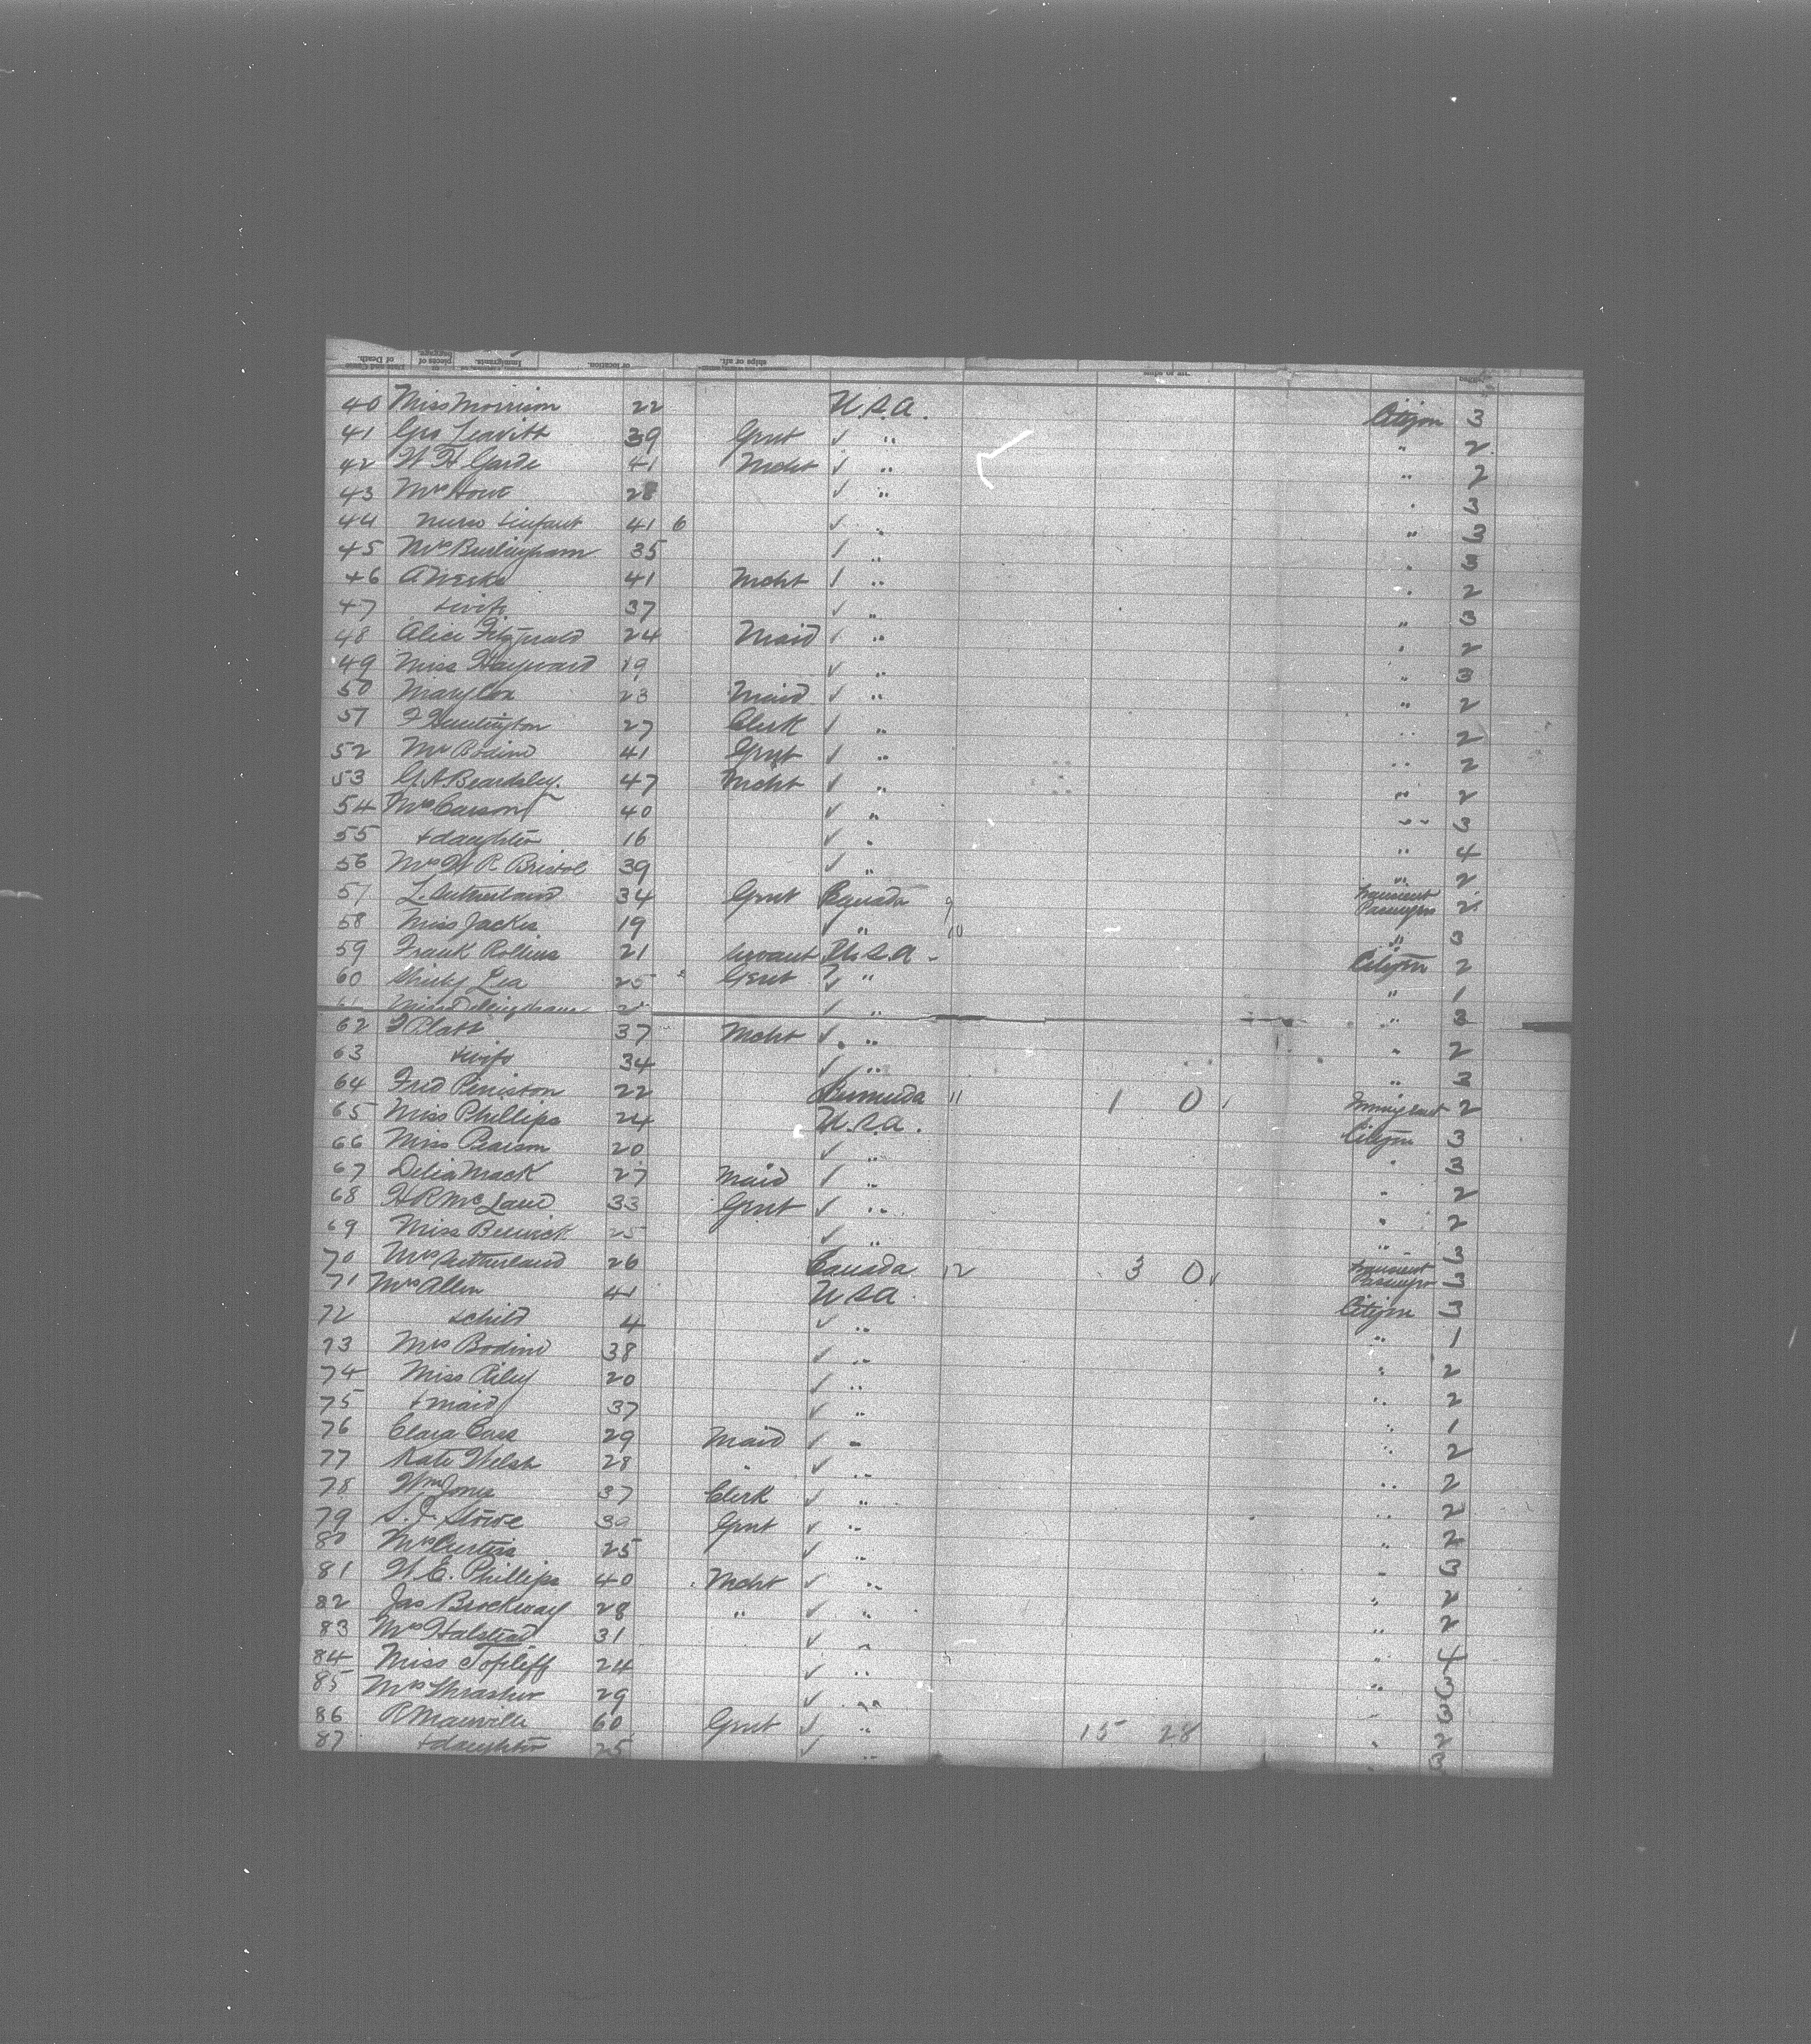 Date and Cause of Death.
pieces of baggage
Immigrants.
or location.
ships or aft.
40 Miss Morrison 22 U.S.A. Citizen 3
41 Geo Leavitt 39 Gent ✓ " " 2
42 W H Garde 41 Mcht ✓ " " 2
43 Mrs Howe 28 ✓ " " 3
44 nurse & infant 41 6 ✓ " " 3
45 Mrs Burlingham 35 ✓ " " 3
46 A Weeks 41 Mcht ✓ " " 2
47 & wife 37 ✓ " " 3
48 Alice Fitzgerald 24 Maid ✓ " " 2
49 Miss Hayward 19 ✓ " " 3
50 Mary Cox 23 Maid ✓ " " 2
51 F Huntington 27 Clerk ✓ " " 2
52 Mr Bodine 41 Gent ✓ " " 2
53 G. A Beardsley. 47 Mcht ✓ " " 2
54 Mrs Carson 40 ✓ " " 3
55 & daughter 16 ✓ " " 4
56 Mrs W R Bristol 39 ✓ " " 2
57 L Sutherland 34 Gent Canada 9 Transient Passengers 2
58 Miss Jackes 19 " 10 " 3
59 Frank Rollins 21 Servant U.S.A - Citizen 2
60 Lea 25 Gent ✓ " " 1
61 Miss Dillingham ✓ " " 3
62 F Platt 37 Mcht ✓ " " 2
63 & wife 34 ✓ " " 3
64 Fred Peniston 22 Bermuda 11 1 0 Immigrant 2
65 Miss Phillips 24 U.S.A. Citizen 3
66 Miss Pearson 20 ✓ " " 3
67 Delia Mack 27 Maid ✓ " " 2
68 H R McLane 33 Gent ✓ " " 2
69 Miss 25 ✓ " " 3
70 Mrs Sutherland 26 Canada 12 3 0 ✓ Transient Passengers 3
71 Mrs Allen 41 U S A Citizen 3
72 & child 4 ✓ " " 1
73 Mrs Bodine 38 ✓ " " 2
74 Miss Riley 20 ✓ " " 2
75 & maid 37 ✓ " " 1
76 Clara Cass 29 Maid ✓ " " 2
77 Kate Welsh 28 " ✓ " " 2
78 Wm Jones 37 Clerk ✓ " " 2
79 S. J. Stowe 39 Gent ✓ " " 2
80 Mrs Curtiss 25 ✓ " " 3
81 W. E. Phillips 40 Mcht ✓ " " 2
82 Jas Brockway 28 " ✓ " " 2
83 Mrs Halstead 31 ✓ " " 4
84 Miss Topliff 24 ✓ " " 3
85 Mrs Thrasher 29 ✓ " " 3
86 R Manville 60 Gent ✓ " 15 28 " 2
87 & daughter 25 ✓ " " 3